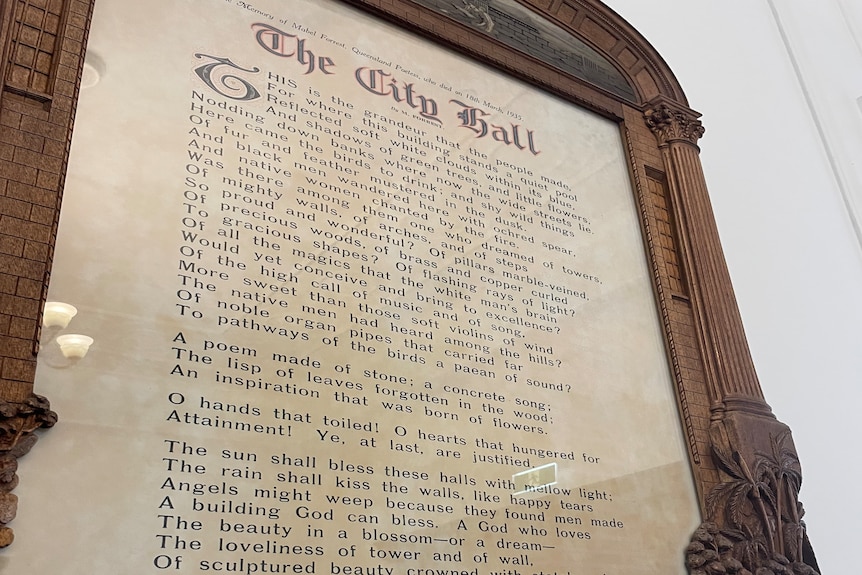 Memory of Mabel Forrest, Queensland Poetess, who died on 18th March, 1935
The City Hall
By M. FORREST
THIS is the grandeur that the people made,
For where this building stands a quiet pool
Reflected soft white clouds within its blue,
And shadows of green trees, and little flowers,
Nodding down banks where now the wide streets lie.
Here came the birds to drink; and shy wild things
Of fur and feather mustered in the dusk.
And black men wandered here with ochred spear,
And native women chanted by the fire.
Was there among them one who dreamed of towers,
Of mighty walls, of arches, and of steps
So proud and wonderful? Of pillars marble-veined,
Of precious woods, of brass and copper curled
To gracious shapes? Of flashing rays of light?
Of all the magics that the white man's brain
Would yet conceive and bring to excellence?
Of the high call of music and of song,
More sweet than those soft violins of wind
The native men had heard among the hills?
Of noble organ pipes that carried far
To pathways of the birds a paean of sound?
A poem made of stone; a concrete song;
The lisp of leaves forgotten in the wood;
An inspiration that was born of flowers.
O hands that toiled! O hearts that hungered for
Attainment! Ye, at last, are justified.
The sun shall bless these halls with mellow light;
The rain shall kiss the walls, like happy tears
Angels might weep because they found men made
A building God can bless. A God who loves
The beauty in a blossom—or a dream—
The loveliness of tower and of wall.
Of sculptured beauty crowned with